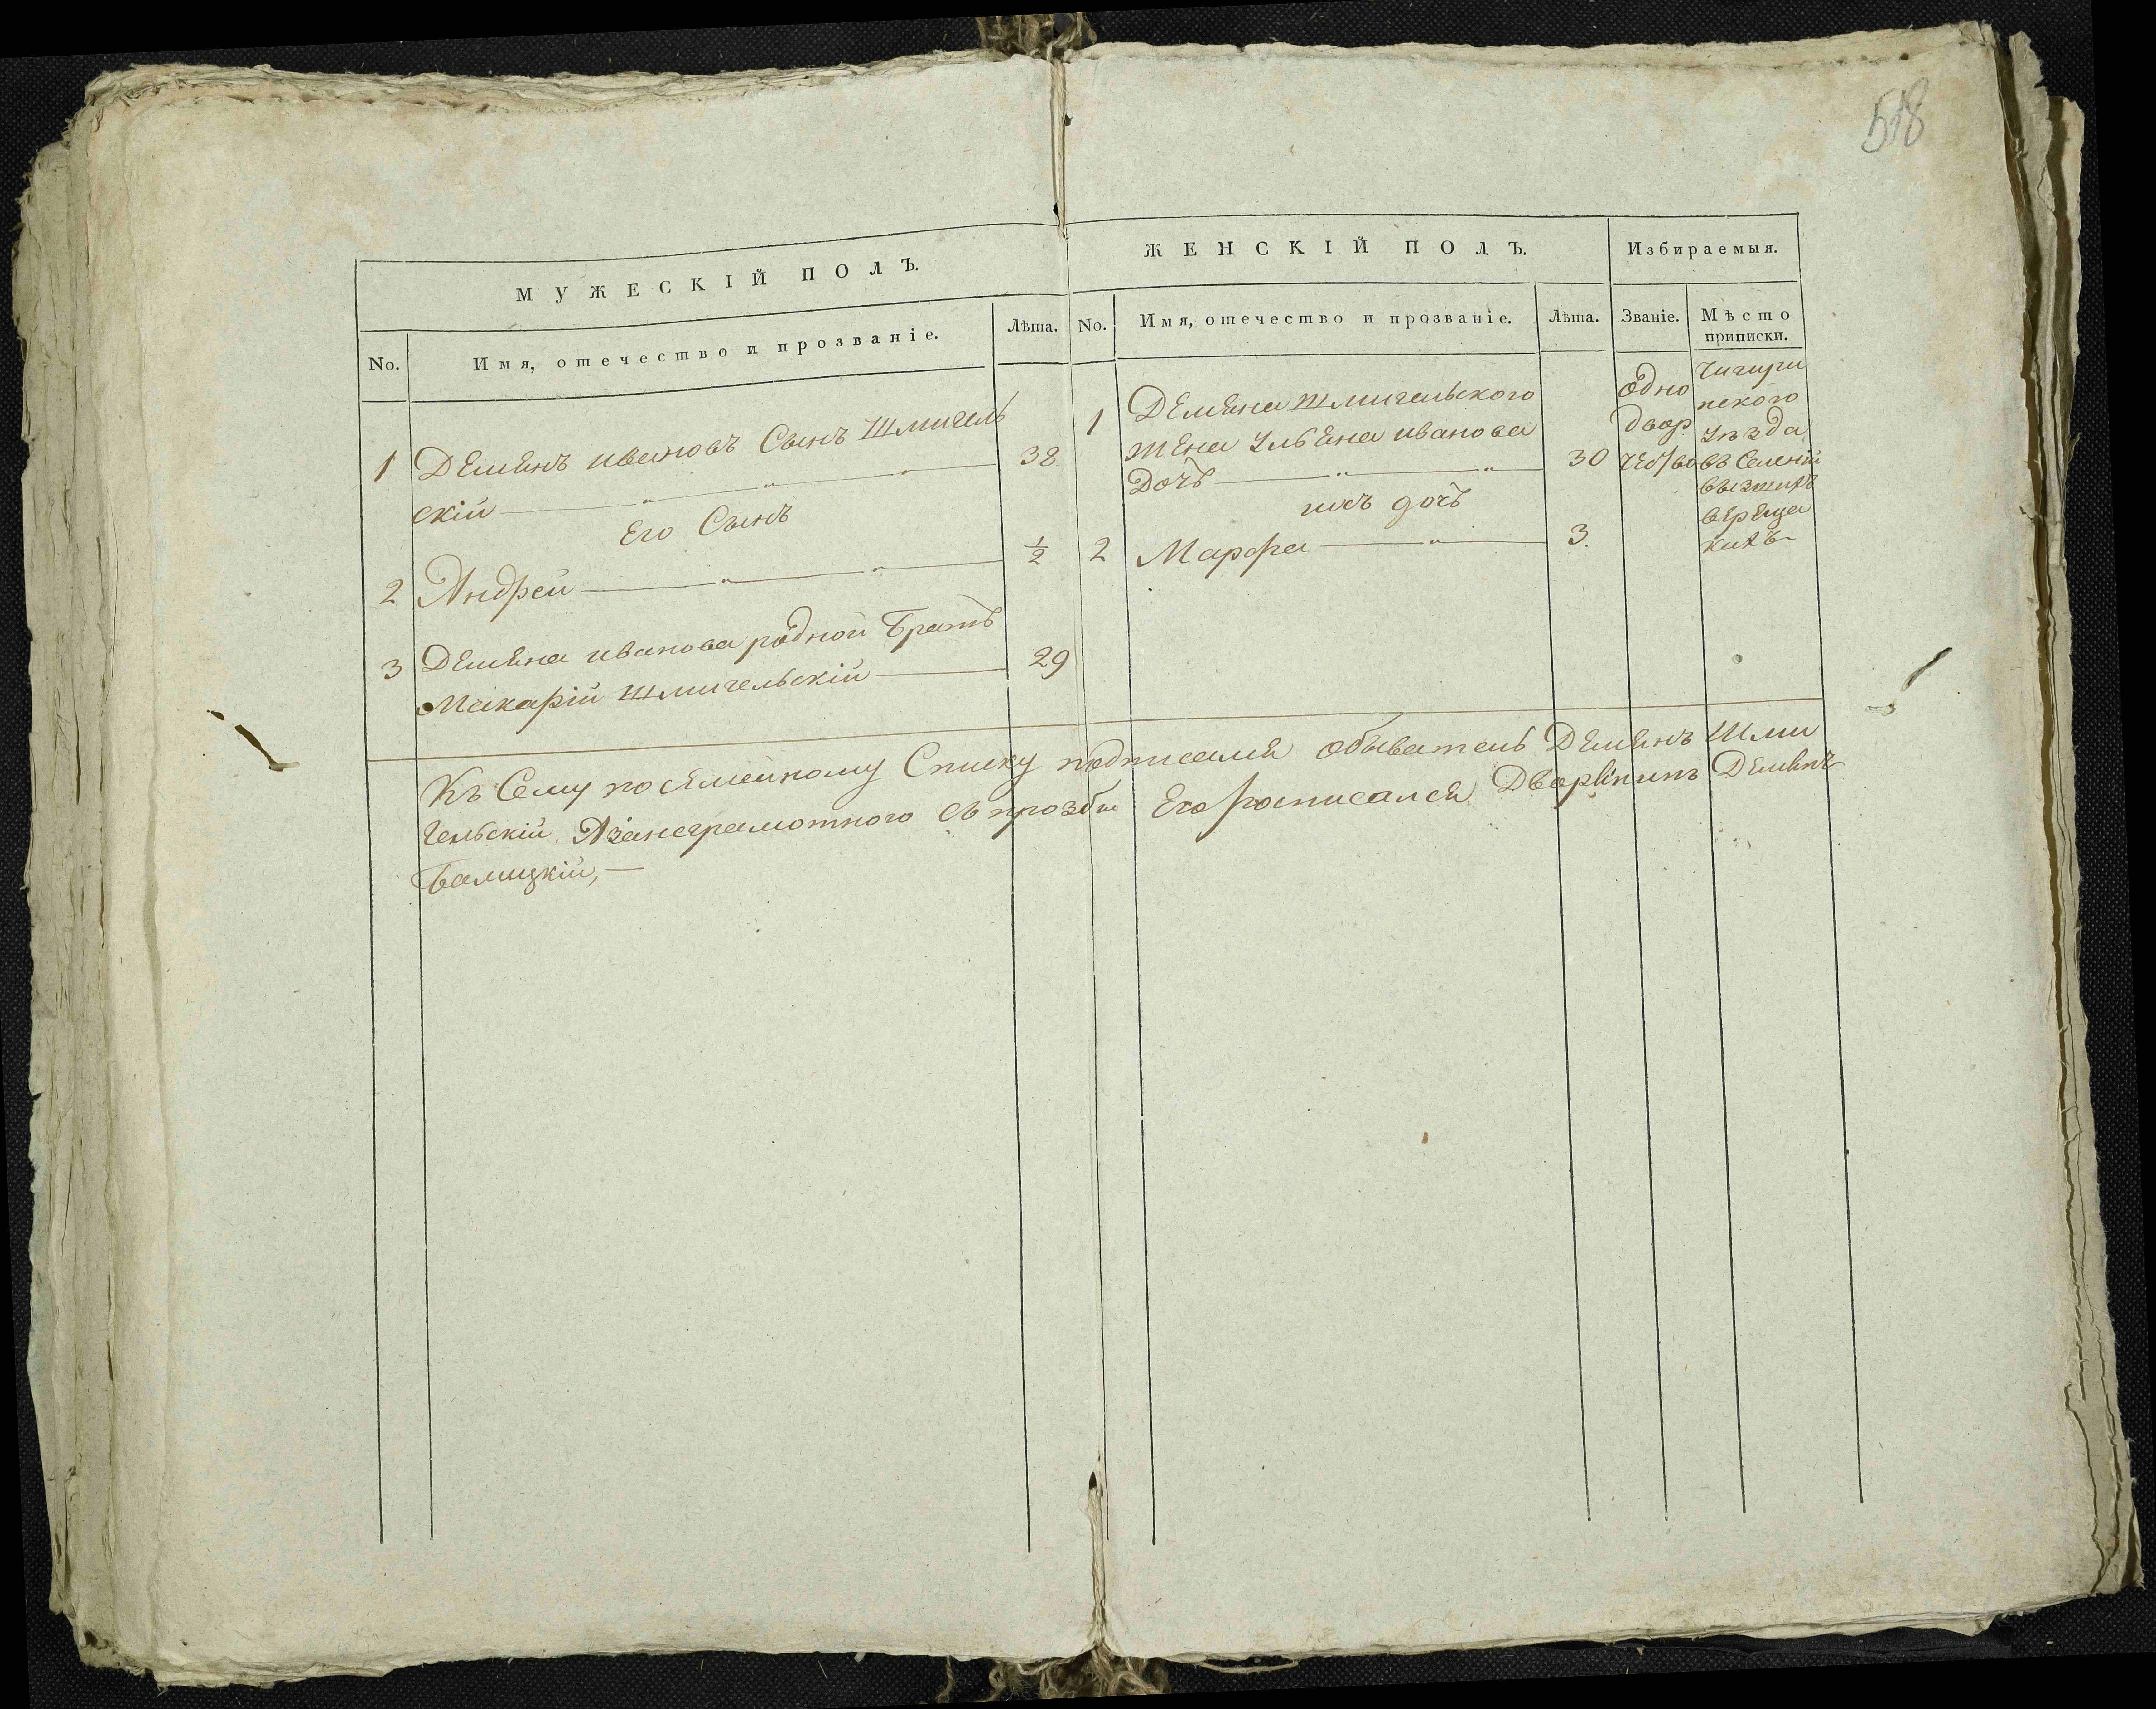 518
МУЖЕСКІЙ ПОЛЪ.
No. Имя, отечество и прозваніе. Лѣта.
1 Демянъ ивановъ Сынъ Шмигель
скій 38
Его Сынъ
2 Андрей ½
3 Демяна иванова родной Братъ
Макарій Шмигельскій 29
ЖЕНСКІЙ ПОЛЪ.
No. Имя, отечество и прозваніе. Лѣта.
1 Демяна Шмигельского
жена Ульяна иванова
Дочь 30
ихъ дочь
2 Марфа 3.
Избираемыя.
Званіе.
Одно
двор
чество
Мѣсто
приписки.
Чигири
нского
уѣзда
въ Селеній
Верещa
кахъ
Къ Сему посемейному Списку подписался обыватель Демянъ Шми
гельскій, Азанеграмотного съ прозбы Его росписался Дворянинъ Демянъ
Балицкій,